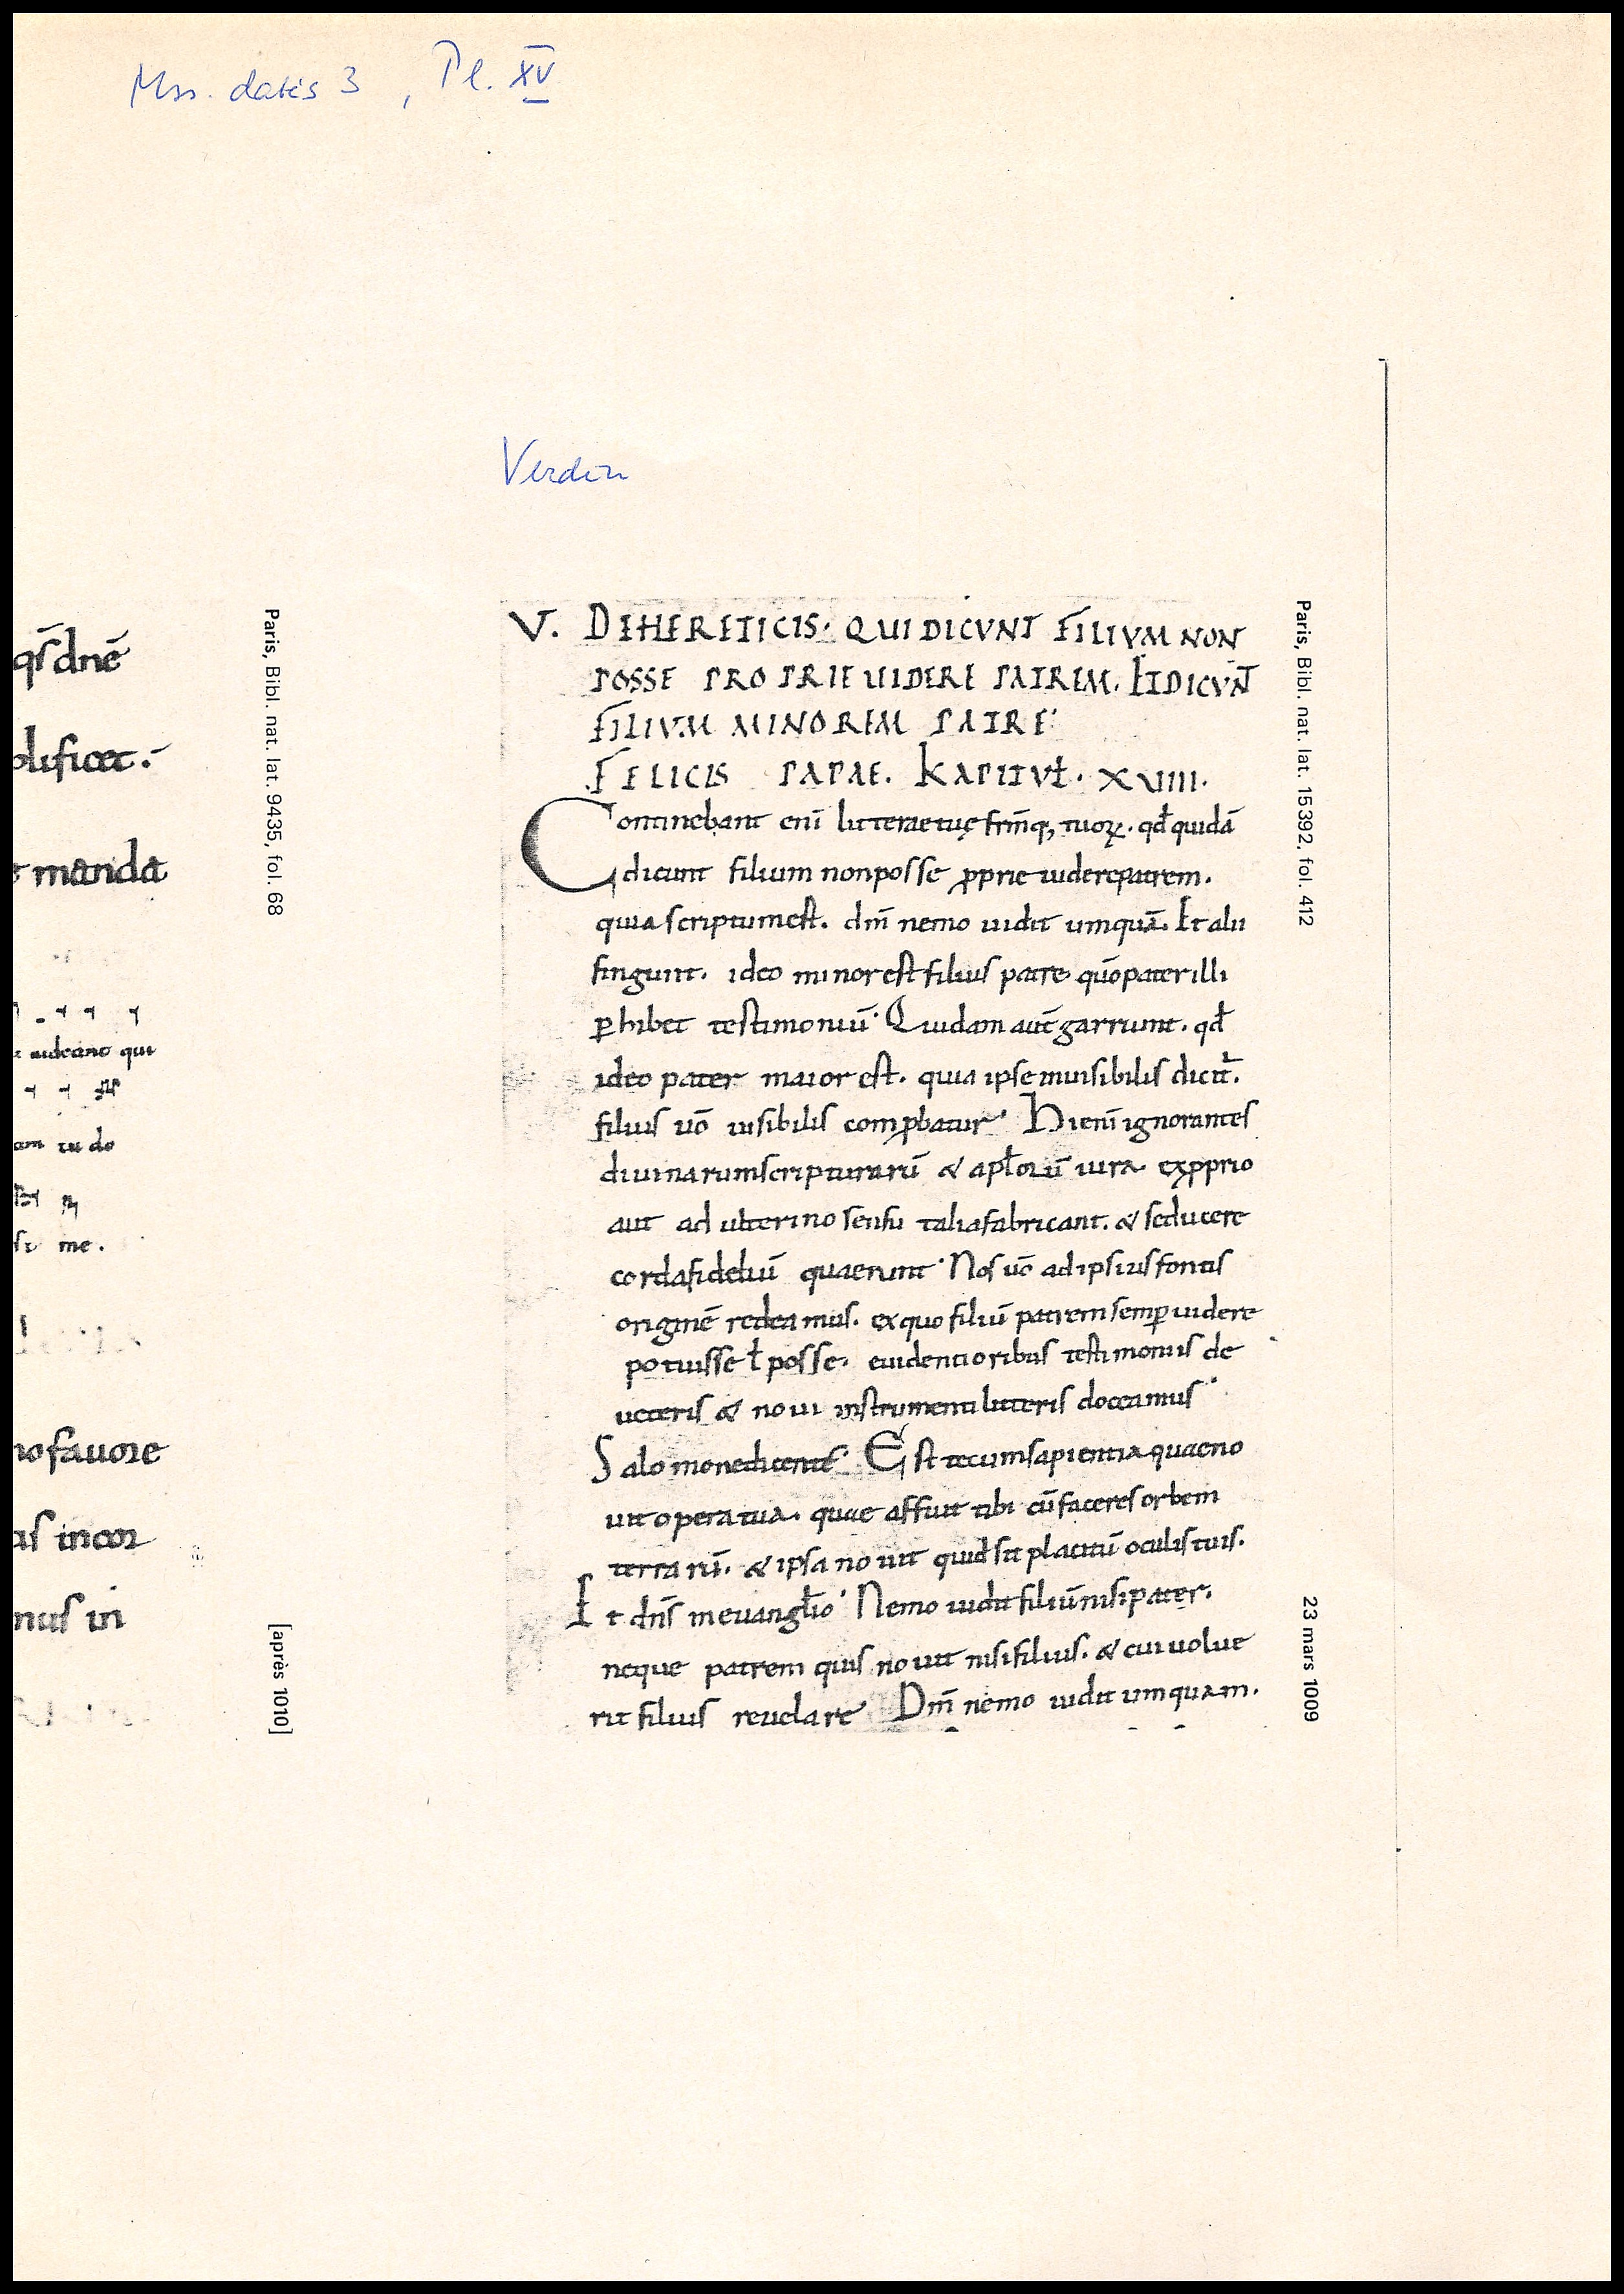 Mss. datés 3, Pl. XV
Verdun
qs̄ dnē
plificet.
t manda
Paris, Bibl. nat. lat. 9435, fol. 68
qui
am tu do
me.
no favore
as incor
nus in
[après 1010]
V. DE HERETICIS. QUI DICVNT FILIVM NON
POSSE PROPRIE UIDERE PATREM. ET DICVNT
FILIVM MINOREM PATRE.
FELICIS PAPAE. KAPITVŁ. XVIIII.
Continebant enī litterae tuę frm̄q; tuoꝝ. qđ quidā
dicunt filium non posse ꝓprie uidere patrem.
quia scriptum est. dm̄ nemo uidit umquā. Et alii
fingunt. ideo minor est filius patre quō pater illi
ꝑhibet testimoniū. Quidam aut̄ garriunt. qđ
ideo pater maior est. quia ipse inuisibilis dicit̄.
filius uō uisibilis comꝓbatur. Hi enī ignorantes
diuinarum scripturarū & apłorū iura. ex ꝓprio
aut adulterino sensu talia fabricant. & seducere
corda fideliū quaerunt. Nos uō ad ipsius fontis
originē redeamus. ex quo filiū patrem semꝑ uidere
potuisse ł posse. euidentioribus testimoniis de
ueteris & noui instrumenti litteris doceamus.
Salomone dicente. Est tecum sapientia quae no
uit opera tua. quae affuit tibi cū faceres orbem
terrarū. & ipsa nouit quid sit placitū oculis tuis.
Et dn̄s in euanglīo. Nemo uidit filiū nisi pater.
neque patrem quis nouit nisi filius. & cui uolue
rit filius reuelare. Dm̄ nemo uidit umquam.
Paris, Bibl. nat. lat. 15392, fol. 412
23 mars 1009